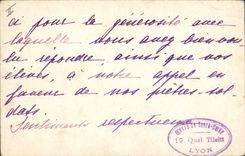 et pour la générosité avec
laquelle vous avez bien vou
lu répondre, ainsi que vos
élèves, à notre appel en
faveur de nos prêtres-sol-
dats.
Sentiments respectueux
19, Quai Tilsitt
LYON